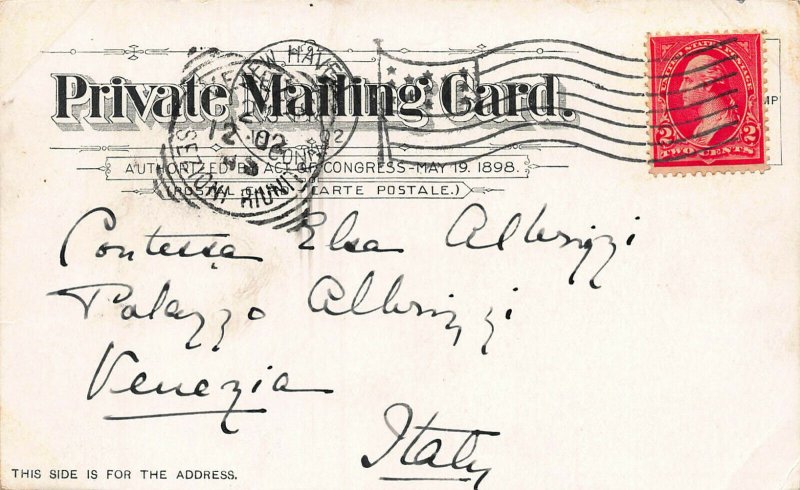 Private Mailing Card.
AUTHORIZED BY ACT OF CONGRESS-MAY 19. 1898.
(POSTAL CARD-CARTE POSTALE.)
NEW HAVEN
CONN
02
12-02
SEZIONI RIUNITE
UNITED STATES POSTAGE
2 2
TWO CENTS
Contessa Elsa Albrizzi
Palazzo Albrizzi
Venezia
Italy
THIS SIDE IS FOR THE ADDRESS.